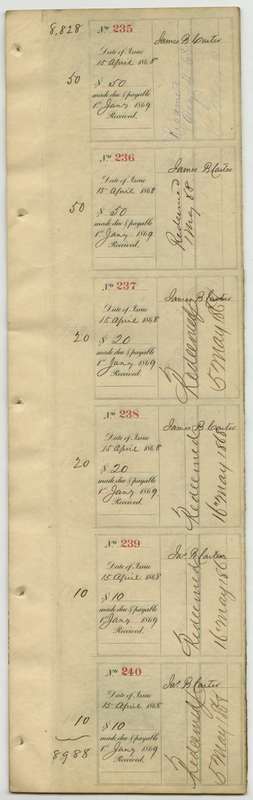 8,828
No 235
James B Carter
Date of Issue
15 April 1868
50
$ 50
made due & payable
1st Jany 1869
Received.
No 236
James B Carter
Date of Issue
15 April 1868
50
$ 50
made due & payable
1st Jany 1869
Received.
Redeemed
May 68
No 237
James B Carter
Date of Issue
15 April 1868
20
$ 20
made due & payable
1st Jany 1869
Received.
Redeemed
5th May 68
No 238
James B Carter
Date of Issue
15 April 1868
20
$ 20
made due & payable
1st Jany 1869
Received.
Redeemed
16th May 1868
No 239
Jas. B Carter
Date of Issue
15 April 1868
10
$ 10
made due & payable
1st Jany 1869
Received.
Redeemed
16th May 186
No 240
Jas. B Carter
Date of Issue
15 April 1868
10
$ 10
made due & payable
1st Jany 1869
Received.
Redeemed
5th May 186
8988